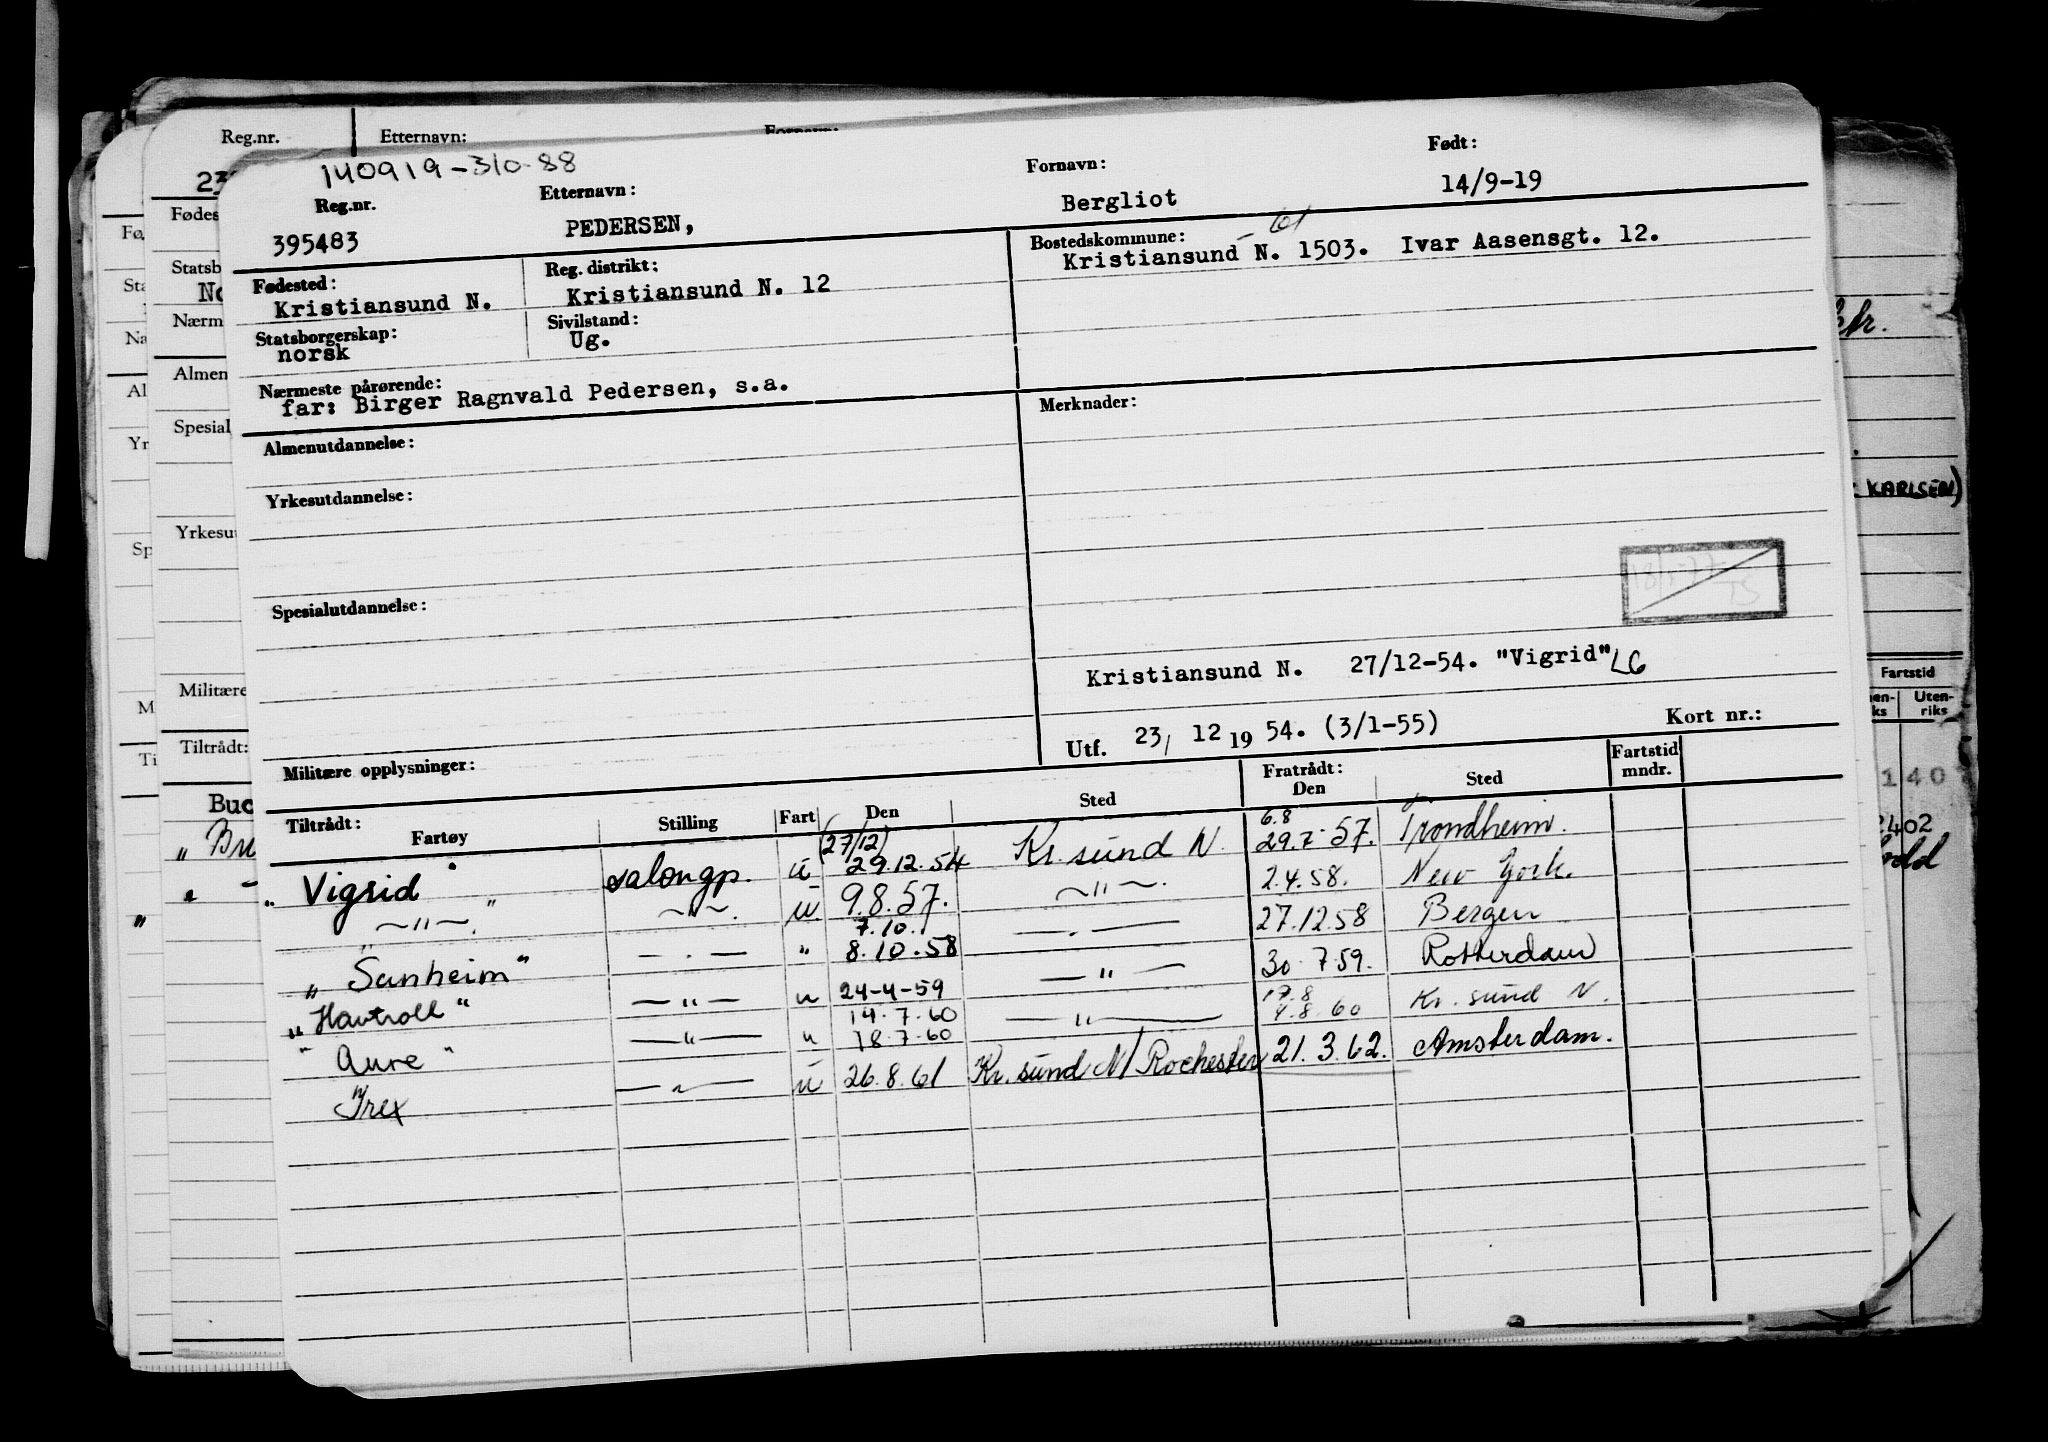 Reg.nr. Etternavn:
140919-310-88
Reg.nr. Etternavn: Fornavn: Født:
395483 PEDERSEN, Bergliot 14/9-19
Fødested: Reg. distrikt: Bostedskommune:
Kristiansund N. Kristiansund N. 12 Kristiansund N. 1503. Ivar Aasensgt. 12.
61
Statsborgerskap: Sivilstand:
norsk Ug.
Nærmeste pårørende:
far: Birger Ragnvald Pedersen, s.a.
Almenutdannelse: Merknader:
Yrkesutdannelse:
Spesialutdannelse:
Kristiansund N. 27/12-54. "Vigrid" LG
Utf. 23/ 12 19 54. (3/1-55) Kort nr.:
Militære opplysninger:
Tiltrådt: Fartøy Stilling Fart Den Sted Fratrådt: Den Sted Fartstid mndr.
(27/12) 6.8
"Vigrid" salongp. u 29.12.54 Kr. sund N. 29.7-57. Trondheim.
" —"—. " —"—. u 9.8.57. —"—. 2.4.58. New York.
7.10.
"Sunheim" — . — " 8.10.58 — . — 27.12.58 Bergen
"Havtroll" — " — u 24-4-59 — " — 30.7.59. Rotterdam
14.7.60 17.8
"Aure" — " — " 18.7.60 — " — 4.8.60 Kr. sund N.
Trex — " — u 26.8.61 Kr. sund N/ Rochester 21.3.62. Amsterdam.
KARLSEN)
Fartstid
Uten-
riks
140
2402